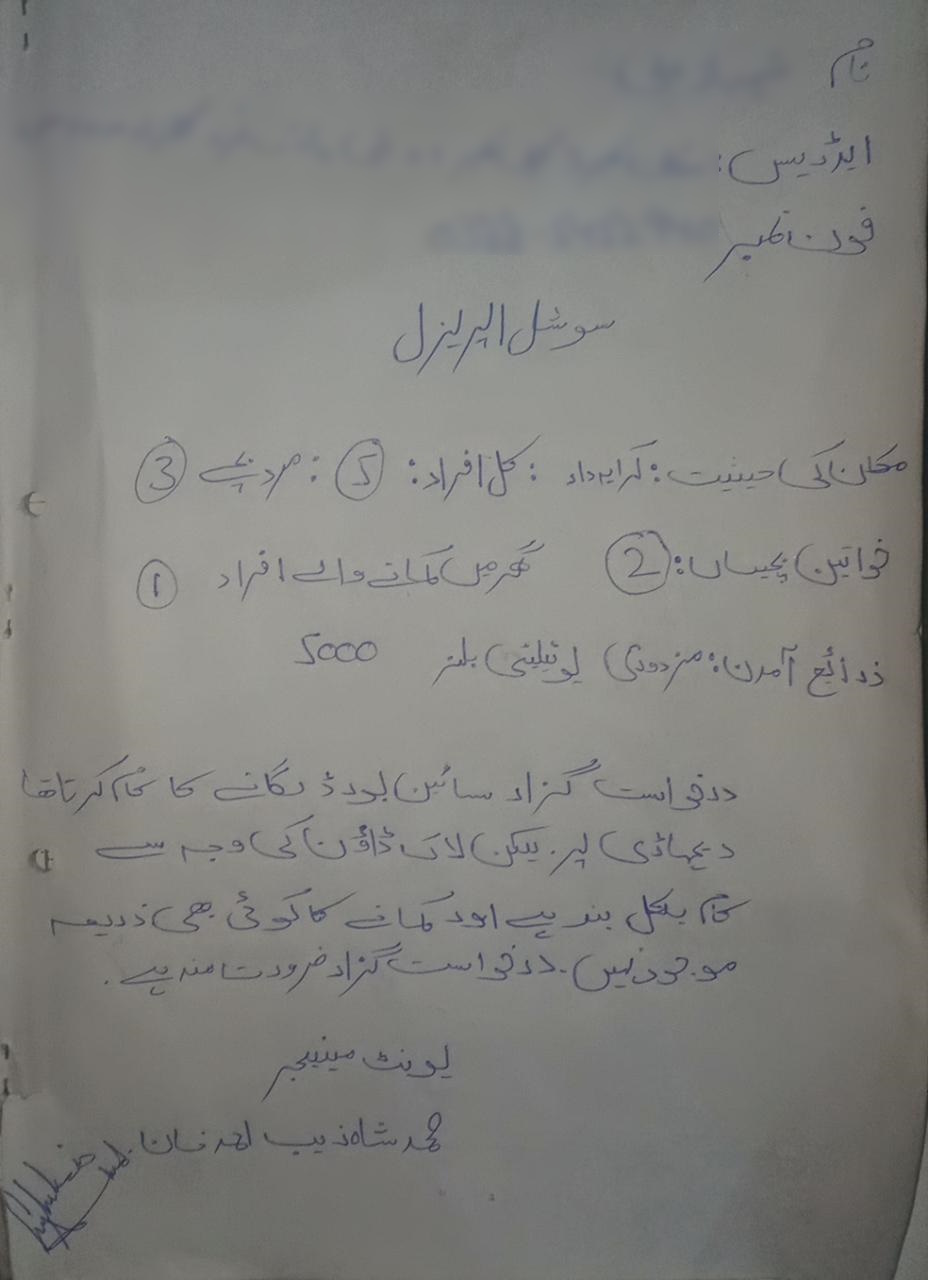 نام
ایڈریس:
فون نمبر
سوشل اپریزل
مکان کی حیثیت: کرایہ دار : کل افراد: 5 : مرد بچے 3
خواتین بچیاں: 2 گھر میں کمانے والے افراد 1
ذرائع آمدن: مزدوری یوٹیلیٹی بلز 5000
درخواست گزار سائین بورڈ لگانے کا کام کرتا تھا
دیہاڑی پر. لیکن لاک ڈاؤن کی وجہ سے
کام بلکل بند ہے اور کمانے کا کوئی بھی ذریعہ
موجود نہیں. درخواست گزار ضرورت مند ہے.
یونٹ مینیجر
محمد شاہ زیب احمد خان